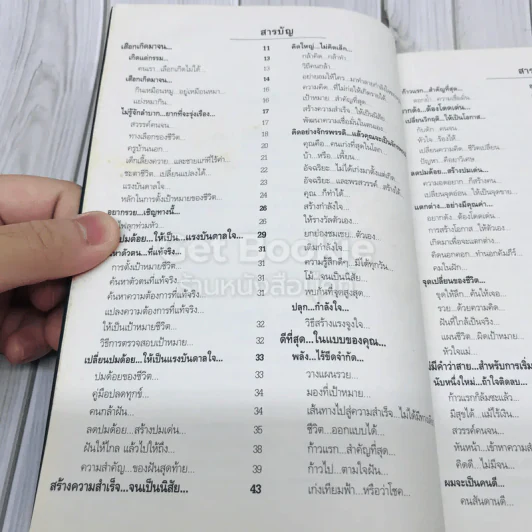 สารบัญ
เลือกเกิดมาจน... 11
เกิดแต่กรรม... 13
คนเรา...เลือกเกิดไม่ได้ 13
เลือกเกิดมาจน... 14
กินเหมือนหมู...อยู่เหมือนหมา 14
แข่งหมากิน 16
ไม่รู้จักลำบาก...ยากที่จะรุ่งเรือง... 17
สวรรค์คนจน 17
ทางเลือกของชีวิต...
ครูบ้านนอก
เด็กเลี้ยงควาย...และชายแก่ขี้ไร้ค่า
ชะตาชีวิต...เปลี่ยนแปลงได้
แรงบันดาลใจ
หลักในการตั้งเป้าหมายของชีวิต
อยากรวย...เชิญทางนี้... 26
ไฟลุกท่วมหัว 26
ปมด้อย...ให้เป็น...แรงบันดาลใจ... 29
หาตัวตน...ที่แท้จริง... 31
การตั้งเป้าหมายชีวิต 31
ค้นหาตัวตนที่แท้จริง 31
ค้นหาความต้องการที่แท้จริง 31
แปลงความต้องการที่แท้จริง
ให้เป็นเป้าหมายชีวิต 32
วิธีการตรวจสอบเป้าหมาย 32
เปลี่ยนปมด้อย...ให้เป็นแรงบันดาลใจ... 33
ปมด้อยของชีวิต... 33
คู่มือปลดทุกข์... 34
คนกล้าฝัน 34
ลดปมด้อย...สร้างปมเด่น 35
ฝันให้ไกล แล้วไปให้ถึง... 38
ความสำคัญ...ของฝันสุดท้าย 39
สร้างความสำเร็จ...จนเป็นนิสัย... 43
คิดใหญ่...ไม่คิดเล็ก...
กล้าคิด...กล้าทำ
วิธีคนกล้า
เป้าหมาย...สำคัญที่สุด
สร้างความสำเร็จ...ให้เป็นนิสัย
พัฒนาความเชื่อมั่นในตนเอง
คุณคือ...คนเก่งที่สุดในโลก
บ้า...หรือ...เพี้ยน...
อัจฉริยะ...ไม่ได้เก่งมาตั้งแต่เกิด
อัจฉริยะ...และพรสวรรค์...สร้างได้
คุณ...ก็ทำได้
สร้างกำลังใจ
ให้รางวัลตัวเอง
ยกย่องชมเชย...ตัวเอง
เติมกำลังใจ
ความรู้สึกดีๆ...มีได้ทุกวัน
โม้...จนเป็นนิสัย
พบกันที่จุดสูงสุด
ปลุก...กำลังใจ
วิธีสร้างแรงจูงใจ
ดีที่สุด...ในแบบของคุณ...
พลัง...ไร้ขีดจำกัด...
วางแผนรวย
มองที่เป้าหมาย
เส้นทางไปสู่ความสำเร็จ...ไม่ได้มีทางเดียว
ชีวิต...ออกแบบได้
ก้าวแรก...สำคัญที่สุด
ก้าวไป...ตามใจฝัน
เก่งเทียมฟ้า...หรือว่าโชค
สาร
ก้าวแรก...สำคัญที่สุด
เปลี่ยนวิกฤติ...ให้เป็นโอกาส
หัวใจ...ร้องไห้
เปลี่ยนความคิด...ชีวิตเปลี่ยน
ปัญหา...คือยาวิเศษ
ลดปมด้อย...สร้างปมเด่น
แตกต่าง...อย่างมีคุณค่า
อยากดัง...ต้องโดดเด่น
การสร้างโอกาส...ให้ตัวเอง
เกิดมาเพื่อจะแตกต่าง
คมในฝัก
จุดเปลี่ยนของชีวิต...
ชุดให้ลึก...ค้นให้เจอ
รวย...ด้วยความคิด
ฝันที่ใกล้เป็นจริง
หัวใจแม่
ไม่มีคำว่าสาย...สำหรับการเริ่ม
นับหนึ่งใหม่...ถ้าใจคิดลบ
ก้าวแรกก็ล้มซะแล้ว
มีสุขได้...แม้ไร้เงิน
สวรรค์คนจน
หันหน้า...เข้าหาความ
คิดดี...ไม่มีจน
ผมจะเป็นคนดี...
คนสันดานดี